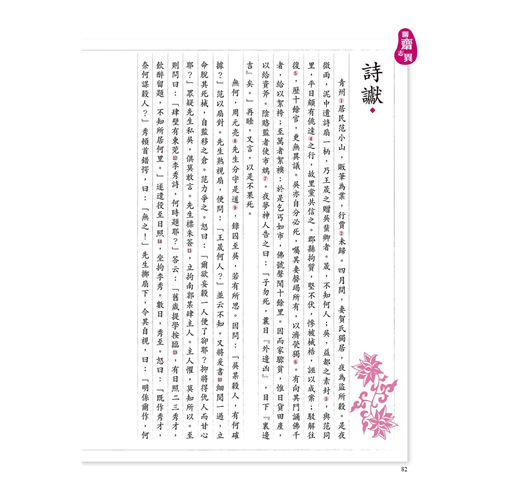 聊齋志異
詩讞
青州①居民范小山，販筆為業，行賈②未歸。四月間，妻賀氏獨居，夜為盜所殺。是夜
微雨，泥中遺詩扇一柄，乃王晟之贈吳蜚卿者。晟，不知何人；吳，益都之素封③，與范同
里，平日頗有佻達④之行，故里黨共信之。郡縣拘質，堅不伏，慘被械梏，誣以成案；駁解往
復⑤，歷十餘官，更無異議。吳亦自分必死，囑其妻罄竭所有，以濟煢獨⑥。有向其門誦佛千
者，給以絮袴；至萬者絮襖：於是乞丐如市，佛號聲聞十餘里。因而家驟貧，惟日貨田產，
以給資斧。陰賂監者使市鴆⑦。夜夢神人告之曰：「子勿死，曩日『外邊凶』，目下『裏邊
吉』矣。」再睡，又言，以是不果死。
無何，周元亮⑧先生分守是道⑨，錄囚至吳，若有所思。因問：「吳某殺人，有何確
據？」范以扇對。先生熟視扇，便問：「王晟何人？」並云不知。又將爰書⑩細閱一過，立
命脫其死械，自監移之倉。范力爭之。怒曰：「爾欲妄殺一人便了卻耶？抑將得仇人而甘心
耶？」眾疑先生私吳，俱莫敢言。先生標朱簽⑪，立拘南郭某肆主人。主人懼，莫知所以。至
則問曰：「肆壁有東莞⑫李秀詩，何時題耶？」答云：「舊歲提學按臨⑬，有日照二三秀才，
飲醉留題，不知所居何里。」遂遣役至日照⑭，坐拘李秀。數日，秀至。怒曰：「既作秀才，
奈何謀殺人？」秀頓首錯愕，曰：「無之！」先生擲扇下，令其自視，曰：「明係爾作，何
82